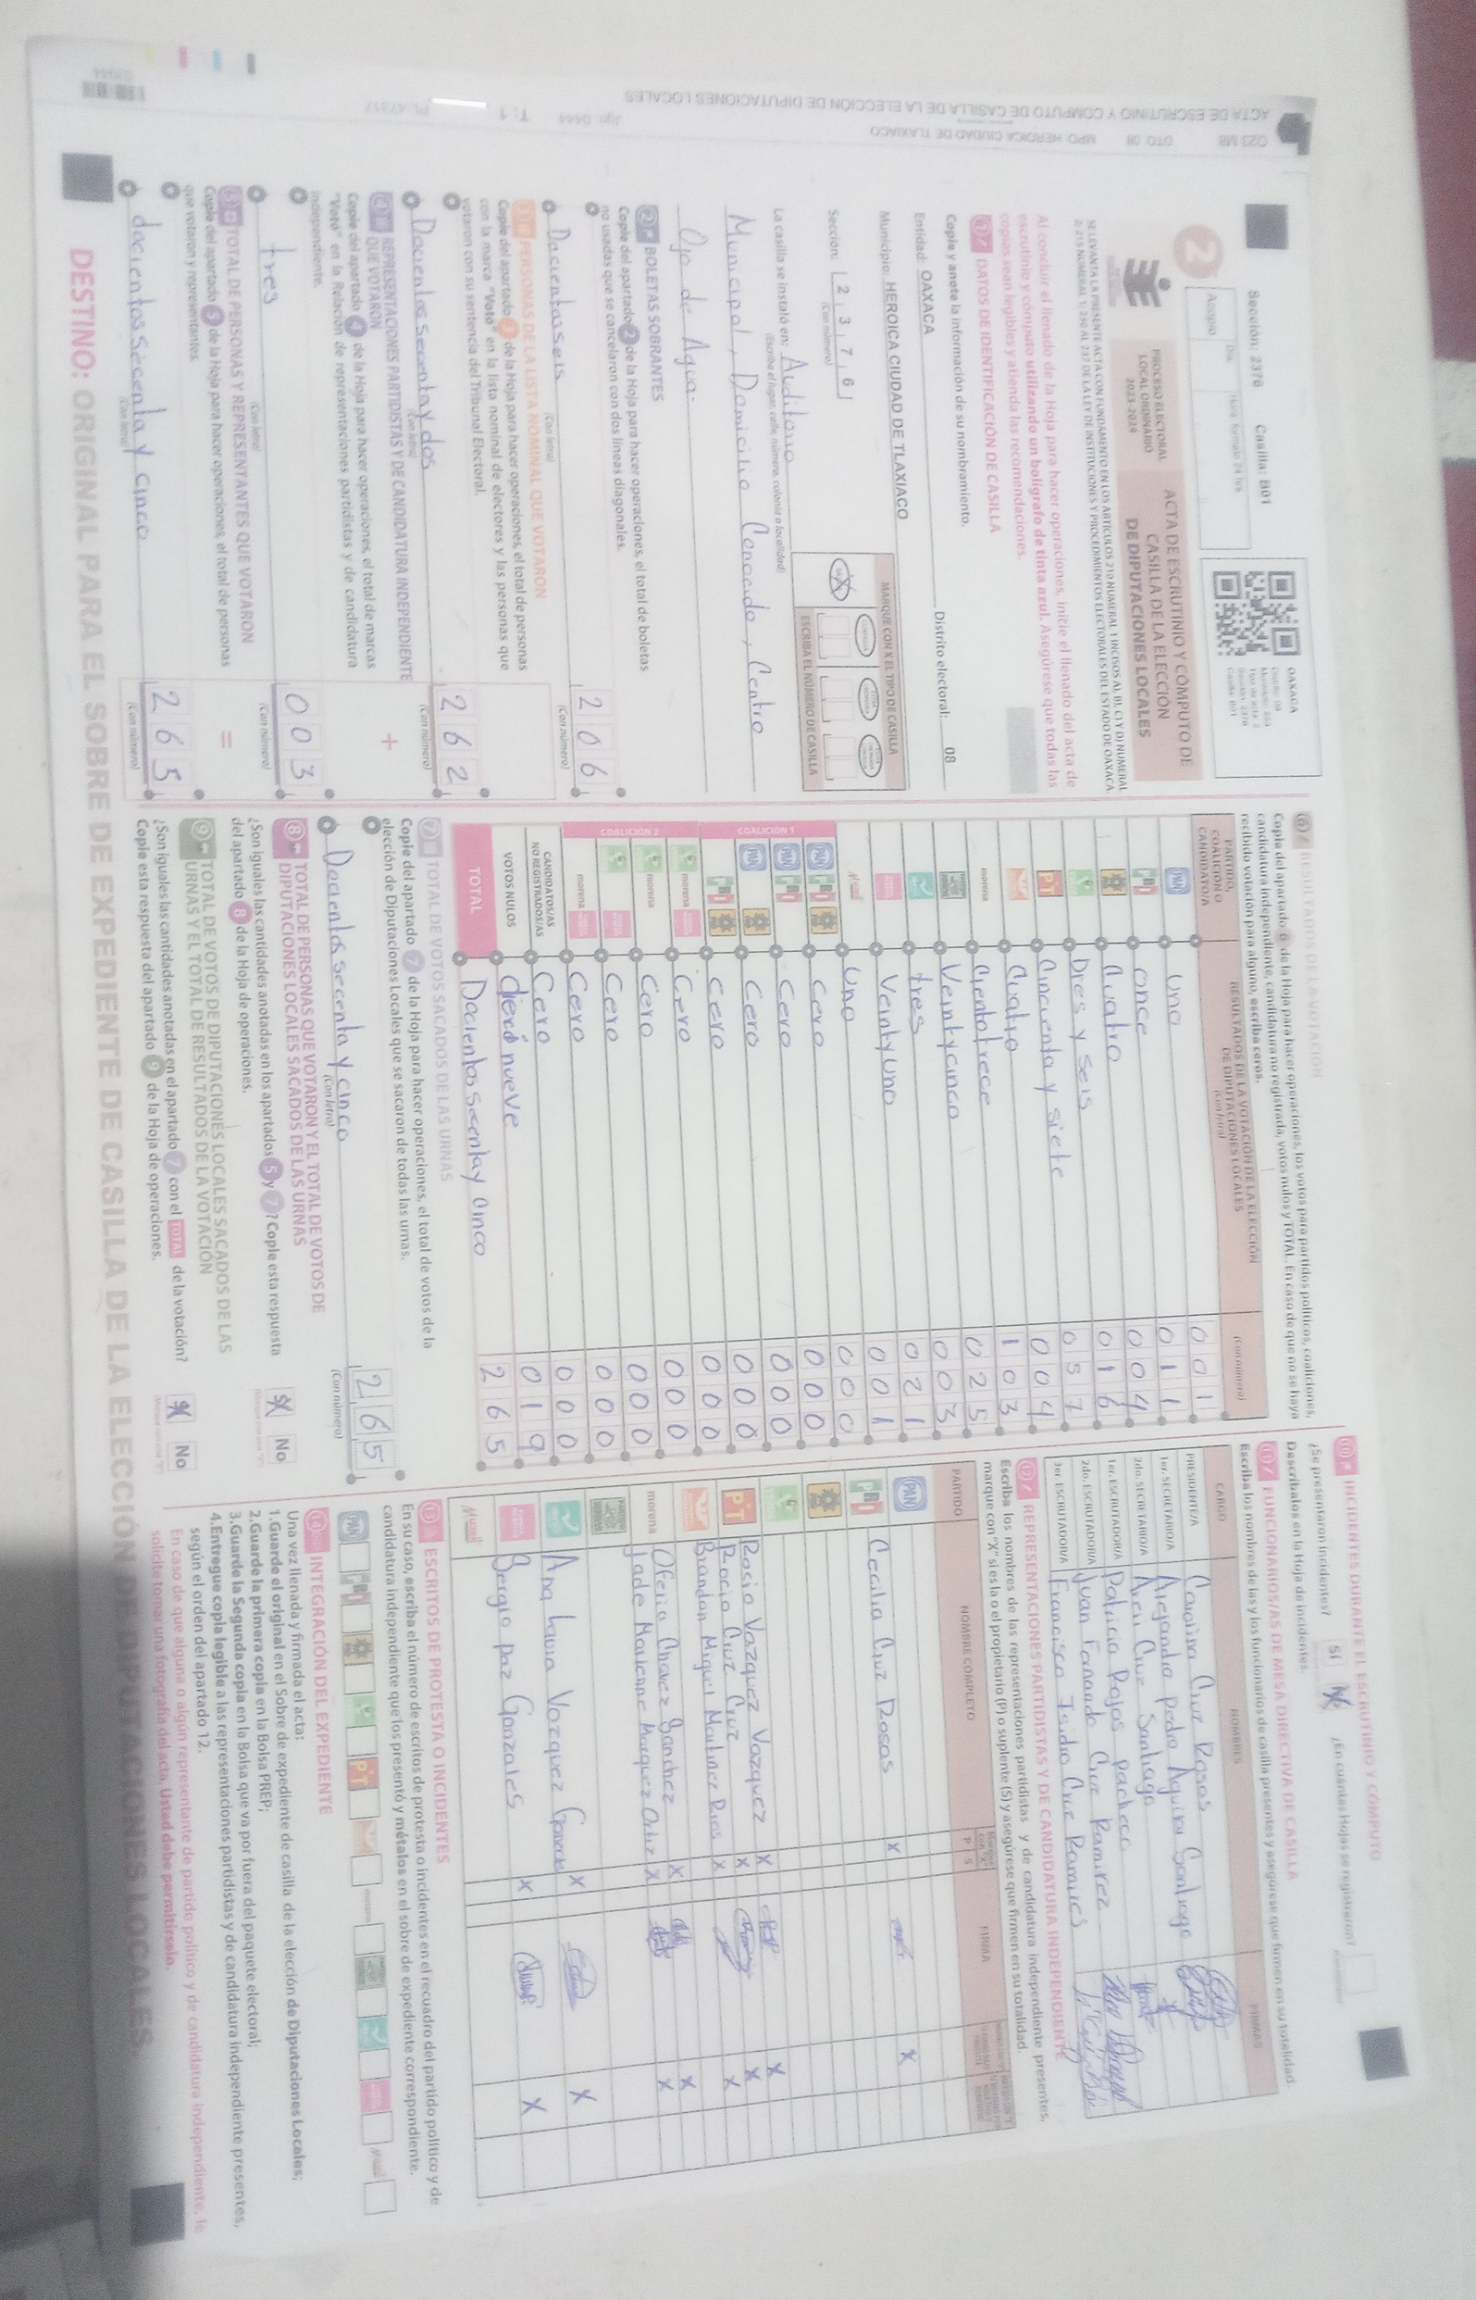 Sección: 2376 Casilla: B01
Acopio
OAXACA
2
PROCESO ELECTORAL
LOCAL ORDINARIO
2023-2024
ACTA DE ESCRUTINIO Y CÓMPUTO DE
CASILLA DE LA ELECCIÓN
DE DIPUTACIONES LOCALES
SE LEVANTA LA PRESENTE ACTA CON FUNDAMENTO EN LOS ARTÍCULOS
Al concluir el llenado de la Hoja para hacer operaciones, inicie el llenado del acta de
escrutinio y cómputo utilizando un bolígrafo de tinta azul. Asegúrese que todas las
copias sean legibles y atienda las recomendaciones.
1 DATOS DE IDENTIFICACIÓN DE CASILLA
Copie y anote la información de su nombramiento.
Entidad: OAXACA Distrito electoral: 08
Municipio: HEROICA CIUDAD DE TLAXIACO
Sección: 2 3 7 6
(Con número)
MARQUE CON X EL TIPO DE CASILLA
ESCRIBA EL NÚMERO DE CASILLA
La casilla se instaló en: Auditorio
(Escriba el lugar: calle, número, colonia o localidad)
Municipal, Domicilio Conocido, Centro
Ojo de Agua.
2 BOLETAS SOBRANTES
Copie del apartado 2 de la Hoja para hacer operaciones, el total de boletas
no usadas que se cancelaron con dos líneas diagonales.
Docientos seis 206
(Con letra) (Con número)
3 PERSONAS DE LA LISTA NOMINAL QUE VOTARON
Copie del apartado 3 de la Hoja para hacer operaciones, el total de personas
con la marca "Votó" en la lista nominal de electores y las personas que
votaron con su sentencia del Tribunal Electoral.
Docientos secenta y dos 262
(Con letra) (Con número)
4 REPRESENTACIONES PARTIDISTAS Y DE CANDIDATURA INDEPENDIENTE
QUE VOTARON
+
Copie del apartado 4 de la Hoja para hacer operaciones, el total de marcas
"Votó" en la Relación de representaciones partidistas y de candidatura
independiente.
tres 003
(Con letra) (Con número)
5 TOTAL DE PERSONAS Y REPRESENTANTES QUE VOTARON
=
Copie del apartado 5 de la Hoja para hacer operaciones, el total de personas
que votaron y representantes.
docientos secenta y cinco 265
(Con letra) (Con número)
6 RESULTADOS DE LA VOTACIÓN
Copie del apartado 6 de la Hoja para hacer operaciones, los votos para partidos políticos, coaliciones,
candidatura independiente, candidatura no registrada, votos nulos y TOTAL. En caso de que no se haya
recibido votación para alguno, escriba ceros.
PARTIDO, COALICIÓN O CANDIDATO/A
RESULTADOS DE LA VOTACIÓN DE LA ELECCIÓN
DE DIPUTACIONES LOCALES
(Con letra) (Con número)
PAN uno 001
PRI once 011
cuatro 004
Dies y seis 016
PT Cincuenta y siete 057
cuatro 004
morena Ciento trece 103
Veinty cinco 025
tres 003
Veinty uno 021
Uno 001
COALICIÓN 1
PAN PRI cero 000
PAN PRI cero 000
PAN cero 000
PRI cero 000
COALICIÓN 2
morena cero 000
morena cero 000
cero 000
morena cero 000
CANDIDATOS/AS
NO REGISTRADOS/AS Cero 000
VOTOS NULOS diecinueve 019
TOTAL Docientos secenta y cinco 265
7 TOTAL DE VOTOS SACADOS DE LAS URNAS
Copie del apartado 7 de la Hoja para hacer operaciones, el total de votos de la
elección de Diputaciones Locales que se sacaron de todas las urnas.
Docientos secenta y cinco 265
(Con letra) (Con número)
8 TOTAL DE PERSONAS QUE VOTARON Y EL TOTAL DE VOTOS DE
DIPUTACIONES LOCALES SACADOS DE LAS URNAS
¿Son iguales las cantidades anotadas en los apartados 5 y 7? Copie esta respuesta
del apartado 8 de la Hoja de operaciones.
Sí No
9 TOTAL DE VOTOS DE DIPUTACIONES LOCALES SACADOS DE LAS
URNAS Y EL TOTAL DE RESULTADOS DE LA VOTACIÓN
¿Son iguales las cantidades anotadas en el apartado 7 con el TOTAL de la votación?
Copie esta respuesta del apartado 9 de la Hoja de operaciones.
Sí No
10 INCIDENTES DURANTE EL ESCRUTINIO Y CÓMPUTO
¿Se presentaron incidentes? Sí No ¿En cuántas Hojas se registraron?
Descríbalos en la Hoja de incidentes.
11 FUNCIONARIOS/AS DE MESA DIRECTIVA DE CASILLA
Escriba los nombres de las y los funcionarios de casilla presentes y asegúrese que firmen en su totalidad.
CARGO NOMBRES FIRMAS
PRESIDENTE/A Carolina Cruz Rosas
1er. SECRETARIO/A Alejandra Pedro Aguirre Santiago
2do. SECRETARIO/A Areli Cruz Santiago
1er. ESCRUTADOR/A Patricia Rojas pacheco
2do. ESCRUTADOR/A Juan Fernando Cruz Ramirez
3er. ESCRUTADOR/A Francisco Isidro Cruz Ramires
12 REPRESENTACIONES PARTIDISTAS Y DE CANDIDATURA INDEPENDIENTE
Escriba los nombres de las representaciones partidistas y de candidatura independiente presentes,
marque con "X" si es la o el propietario (P) o suplente (S) y asegúrese que firmen en su totalidad.
PARTIDO NOMBRE COMPLETO P S FIRMA
PAN
PRI Cecilia Cruz Rosas X X
Rocio Vazquez Vazquez X X
PT Rocio Cruz Cruz X X
Brandon Miguel Martinez Rios X X
morena Ofelia Chavez Sanchez X X
Jade Marlenne Marquez Ortiz X X
Ana Laura Vazquez X X
Sergio paz Gonzales X X
13 ESCRITOS DE PROTESTA O INCIDENTES
En su caso, escriba el número de escritos de protesta o incidentes en el recuadro del partido político y de
candidatura independiente que los presentó y métalos en el sobre de expediente correspondiente.
14 INTEGRACIÓN DEL EXPEDIENTE
Una vez llenada y firmada el acta:
1.Guarde el original en el Sobre de expediente de casilla de la elección de Diputaciones Locales;
2.Guarde la primera copia en la Bolsa PREP;
3.Guarde la Segunda copia en la Bolsa que va por fuera del paquete electoral;
4.Entregue copia legible a las representaciones partidistas y de candidatura independiente presentes,
según el orden del apartado 12.
En caso de que alguna o algún representante de partido político y de candidatura independiente, le
solicite tomar una fotografía del acta, Usted debe permitírselo.
DESTINO: ORIGINAL PARA EL SOBRE DE EXPEDIENTE DE CASILLA DE LA ELECCIÓN DE DIPUTACIONES LOCALES.
MPO: HEROICA CIUDAD DE TLAXIACO
ACTA DE ESCRUTINIO Y CÓMPUTO DE CASILLA DE LA ELECCIÓN DE DIPUTACIONES LOCALES